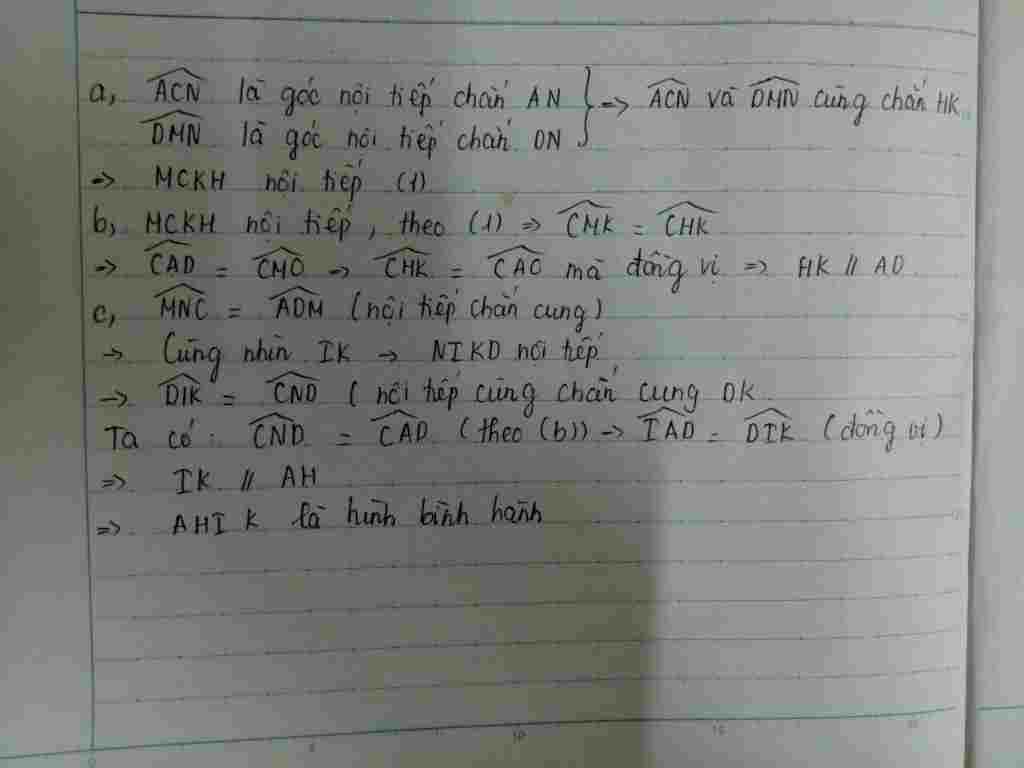 a, ACN là góc nội tiếp chắn AN } => ACN và DMN cùng chắn HK
DMN là góc nội tiếp chắn DN
=> MCKH nội tiếp (1)
b, MCKH nội tiếp, theo (1) => CMK = CHK
=> CAD = CMD -> CHK = CAO mà đồng vị => HK // AD
c, MNC = ADM (nội tiếp chắn cung)
-> Cùng nhìn IK -> NIKD nội tiếp
-> DIK = CND ( nội tiếp cùng chắn cung DK.
Ta có: CND = CAD (theo (b)) -> IAD = DIK (đồng vị)
=> IK // AH
=> AHIK là hình bình hành